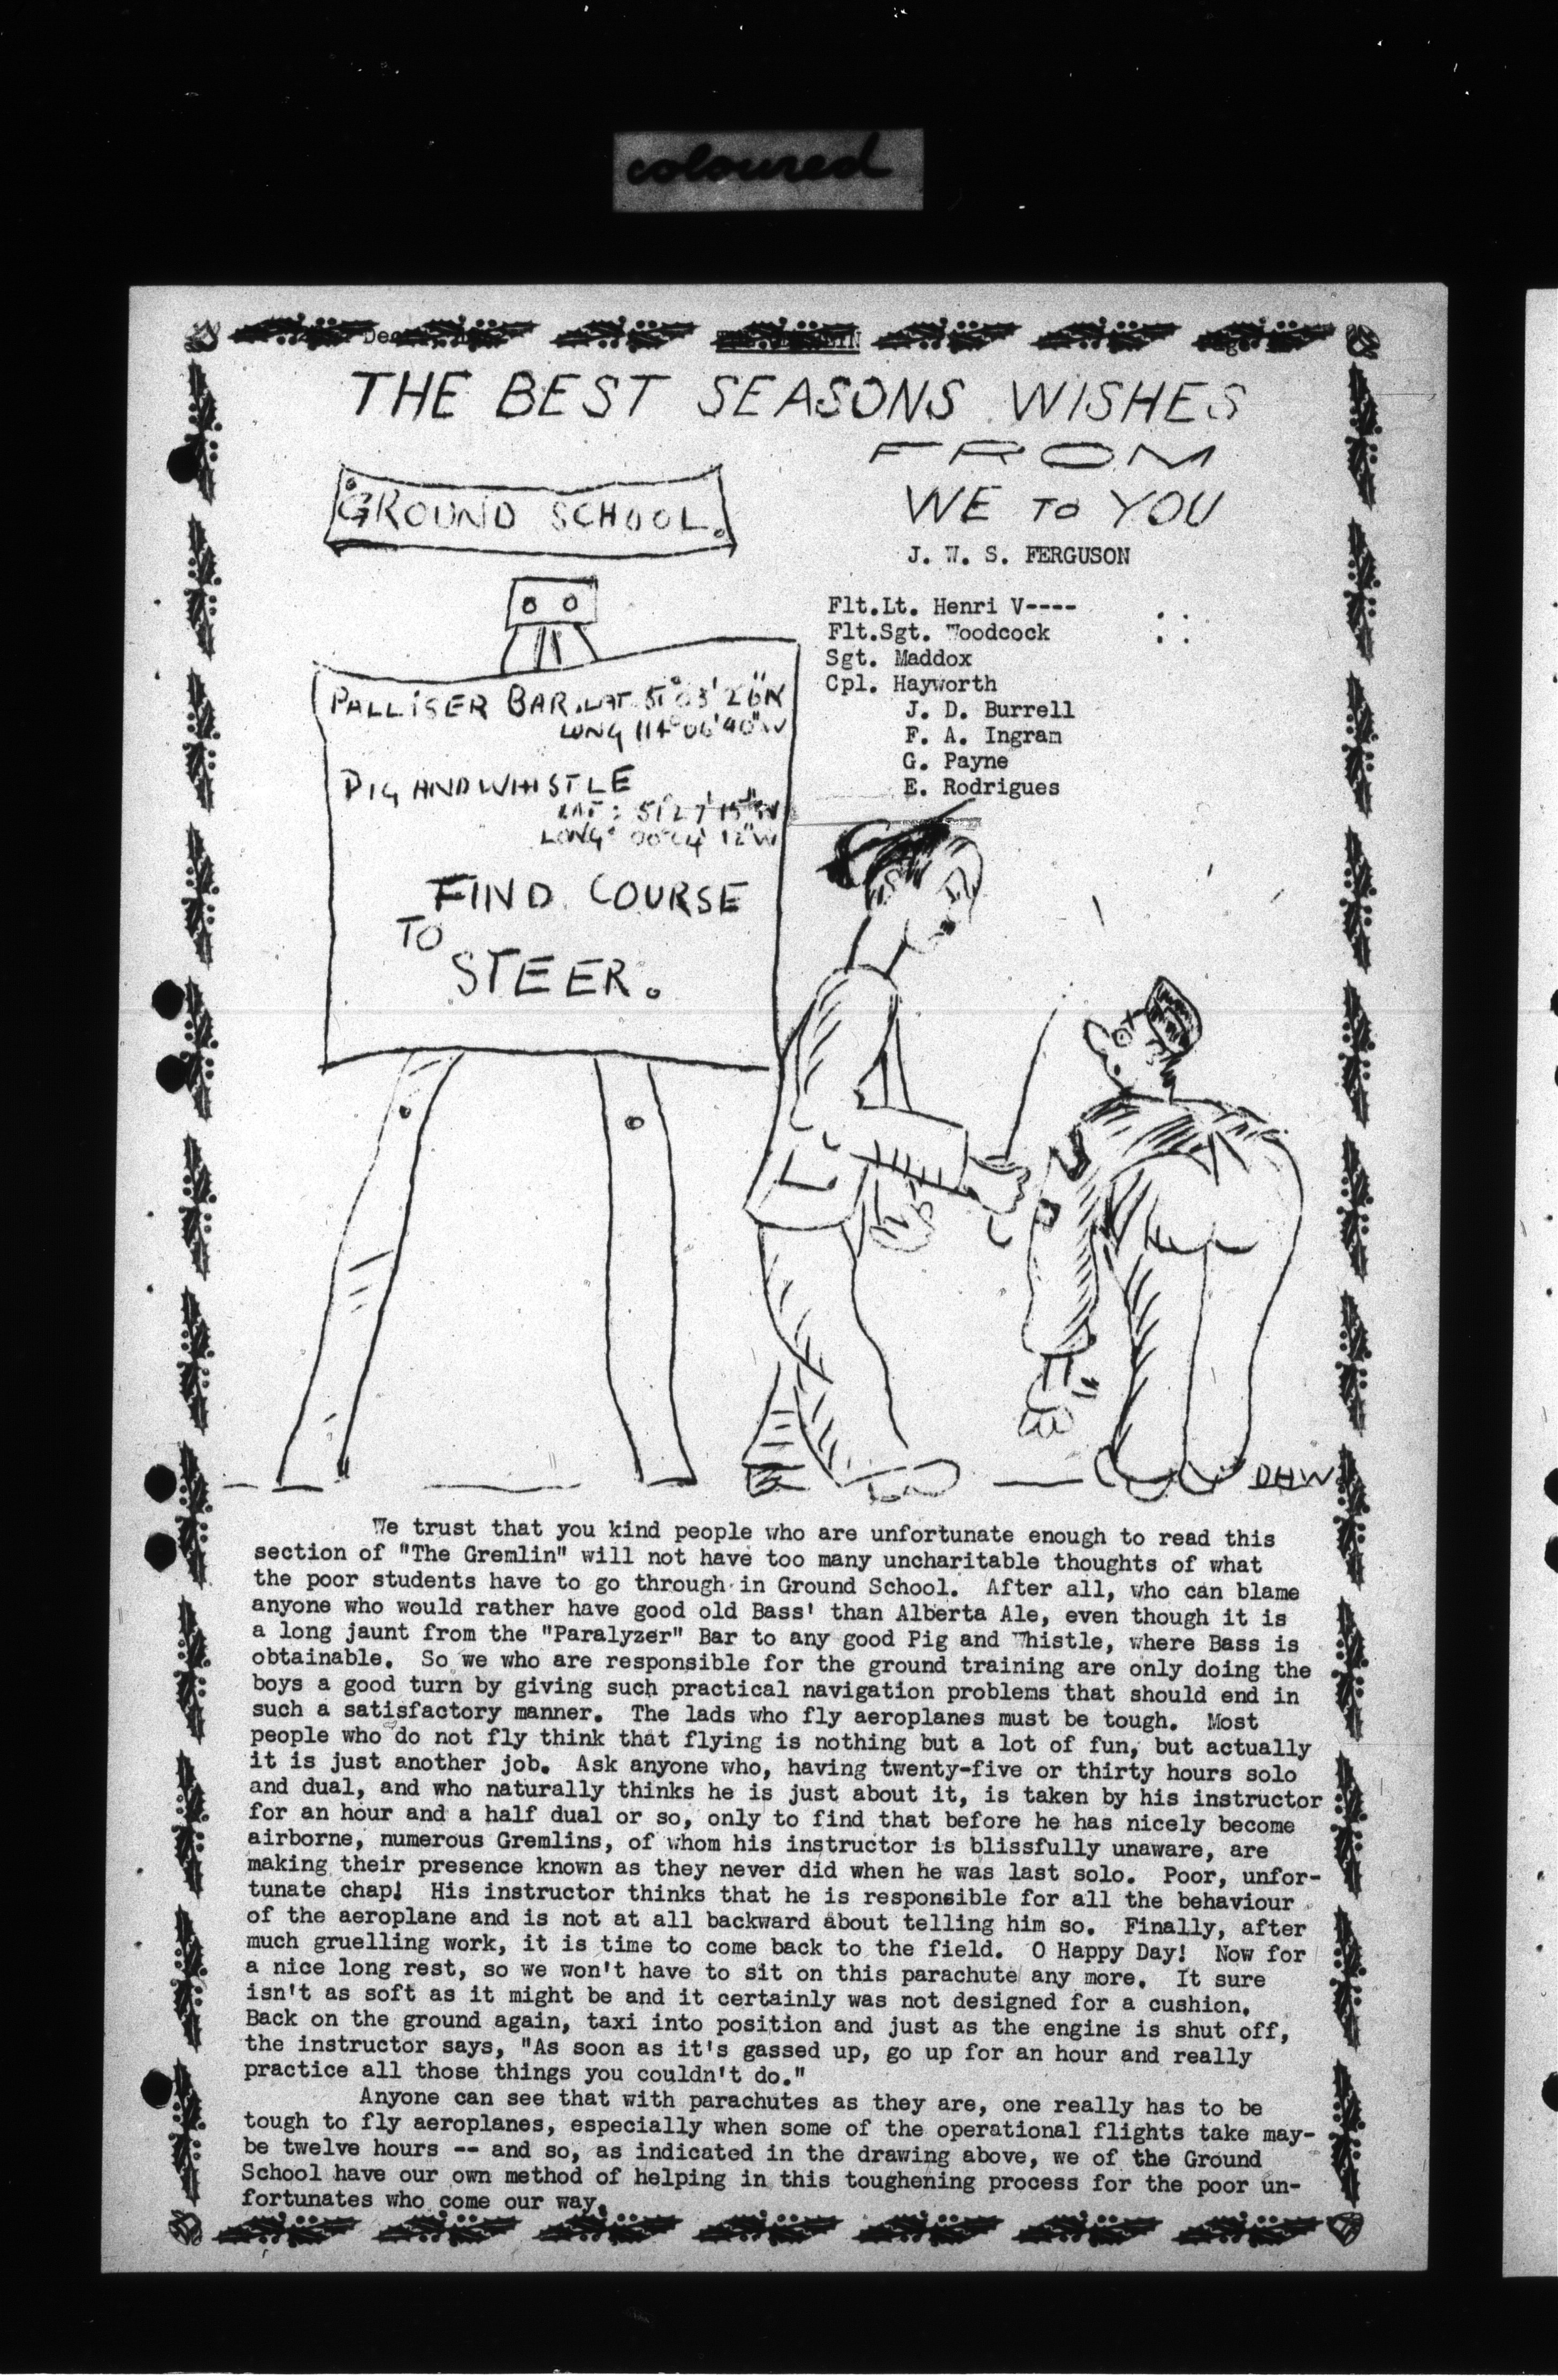 coloured
Dec
THE BEST SEASONS WISHES
FROM
WE TO YOU
GROUND SCHOOL.
J. W. S. FERGUSON
Flt.Lt. Henri V----
Flt.Sgt. Woodcock
Sgt. Maddox
Cpl. Hayworth
J. D. Burrell
F. A. Ingram
G. Payne
E. Rodrigues
PALLISER BAR. LAT. 51° 03' 26"N
LONG 114° 06' 40"W
PIG AND WHISTLE
LAT: 51° 27' 15"
LONG: 00° 04' 12"W
FIND COURSE
TO
STEER.
DHW
We trust that you kind people who are unfortunate enough to read this
section of "The Gremlin" will not have too many uncharitable thoughts of what
the poor students have to go through in Ground School. After all, who can blame
anyone who would rather have good old Bass' than Alberta Ale, even though it is
a long jaunt from the "Paralyzer" Bar to any good Pig and Whistle, where Bass is
obtainable. So we who are responsible for the ground training are only doing the
boys a good turn by giving such practical navigation problems that should end in
such a satisfactory manner. The lads who fly aeroplanes must be tough. Most
people who do not fly think that flying is nothing but a lot of fun, but actually
it is just another job. Ask anyone who, having twenty-five or thirty hours solo
and dual, and who naturally thinks he is just about it, is taken by his instructor
for an hour and a half dual or so, only to find that before he has nicely become
airborne, numerous Gremlins, of whom his instructor is blissfully unaware, are
making their presence known as they never did when he was last solo. Poor, unfor-
tunate chap! His instructor thinks that he is responsible for all the behaviour
of the aeroplane and is not at all backward about telling him so. Finally, after
much gruelling work, it is time to come back to the field. O Happy Day! Now for
a nice long rest, so we won't have to sit on this parachute any more. It sure
isn't as soft as it might be and it certainly was not designed for a cushion.
Back on the ground again, taxi into position and just as the engine is shut off,
the instructor says, "As soon as it's gassed up, go up for an hour and really
practice all those things you couldn't do."
Anyone can see that with parachutes as they are, one really has to be
tough to fly aeroplanes, especially when some of the operational flights take may-
be twelve hours -- and so, as indicated in the drawing above, we of the Ground
School have our own method of helping in this toughening process for the poor un-
fortunates who come our way.